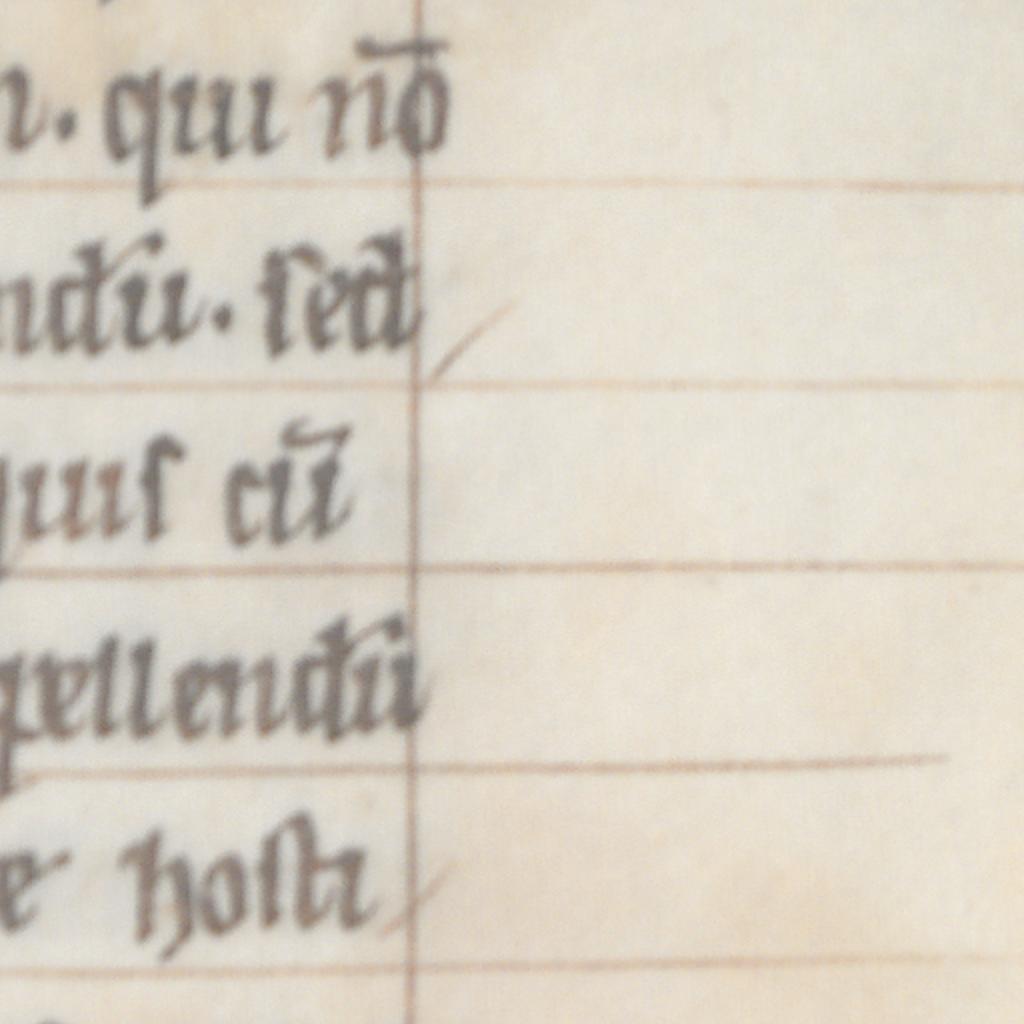 . qui nō
ndū. sed
quis cū
pellendū
e hosti